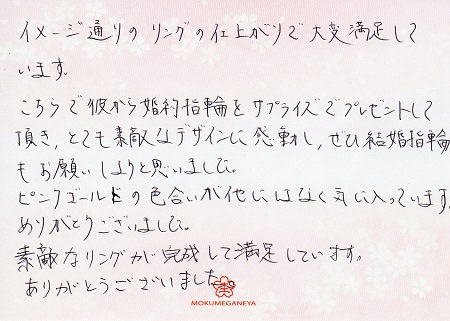 イメージ通りのリングの仕上がりで大変満足して
います。
こちらで彼から婚約指輪をサプライズでプレゼントして
頂き、とても素敵なデザインに感動し、ぜひ結婚指輪
もお願いしようと思いました。
ピンクゴールドの色合いが他にはなく気に入っています。
ありがとうございました。
素敵なリングが完成して満足しています。
ありがとうございました。
MOKUMEGANEYA